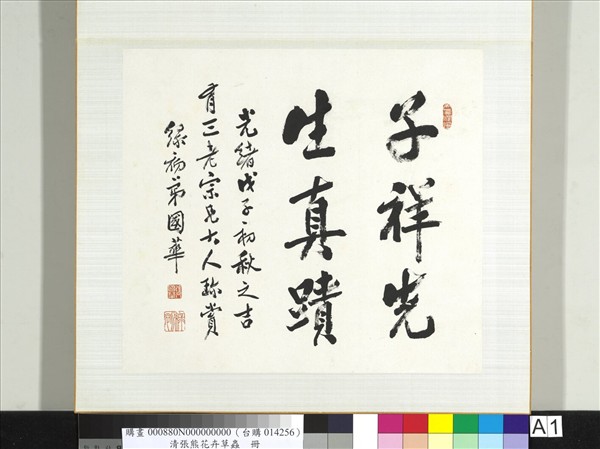 子祥先
生真蹟
光緒戊子初秋之吉
有三老宗兄大人跡賞
緑初弟國華
購畫 000880N000000000 (台購 014256)
清張熊花卉草蟲 冊
A1